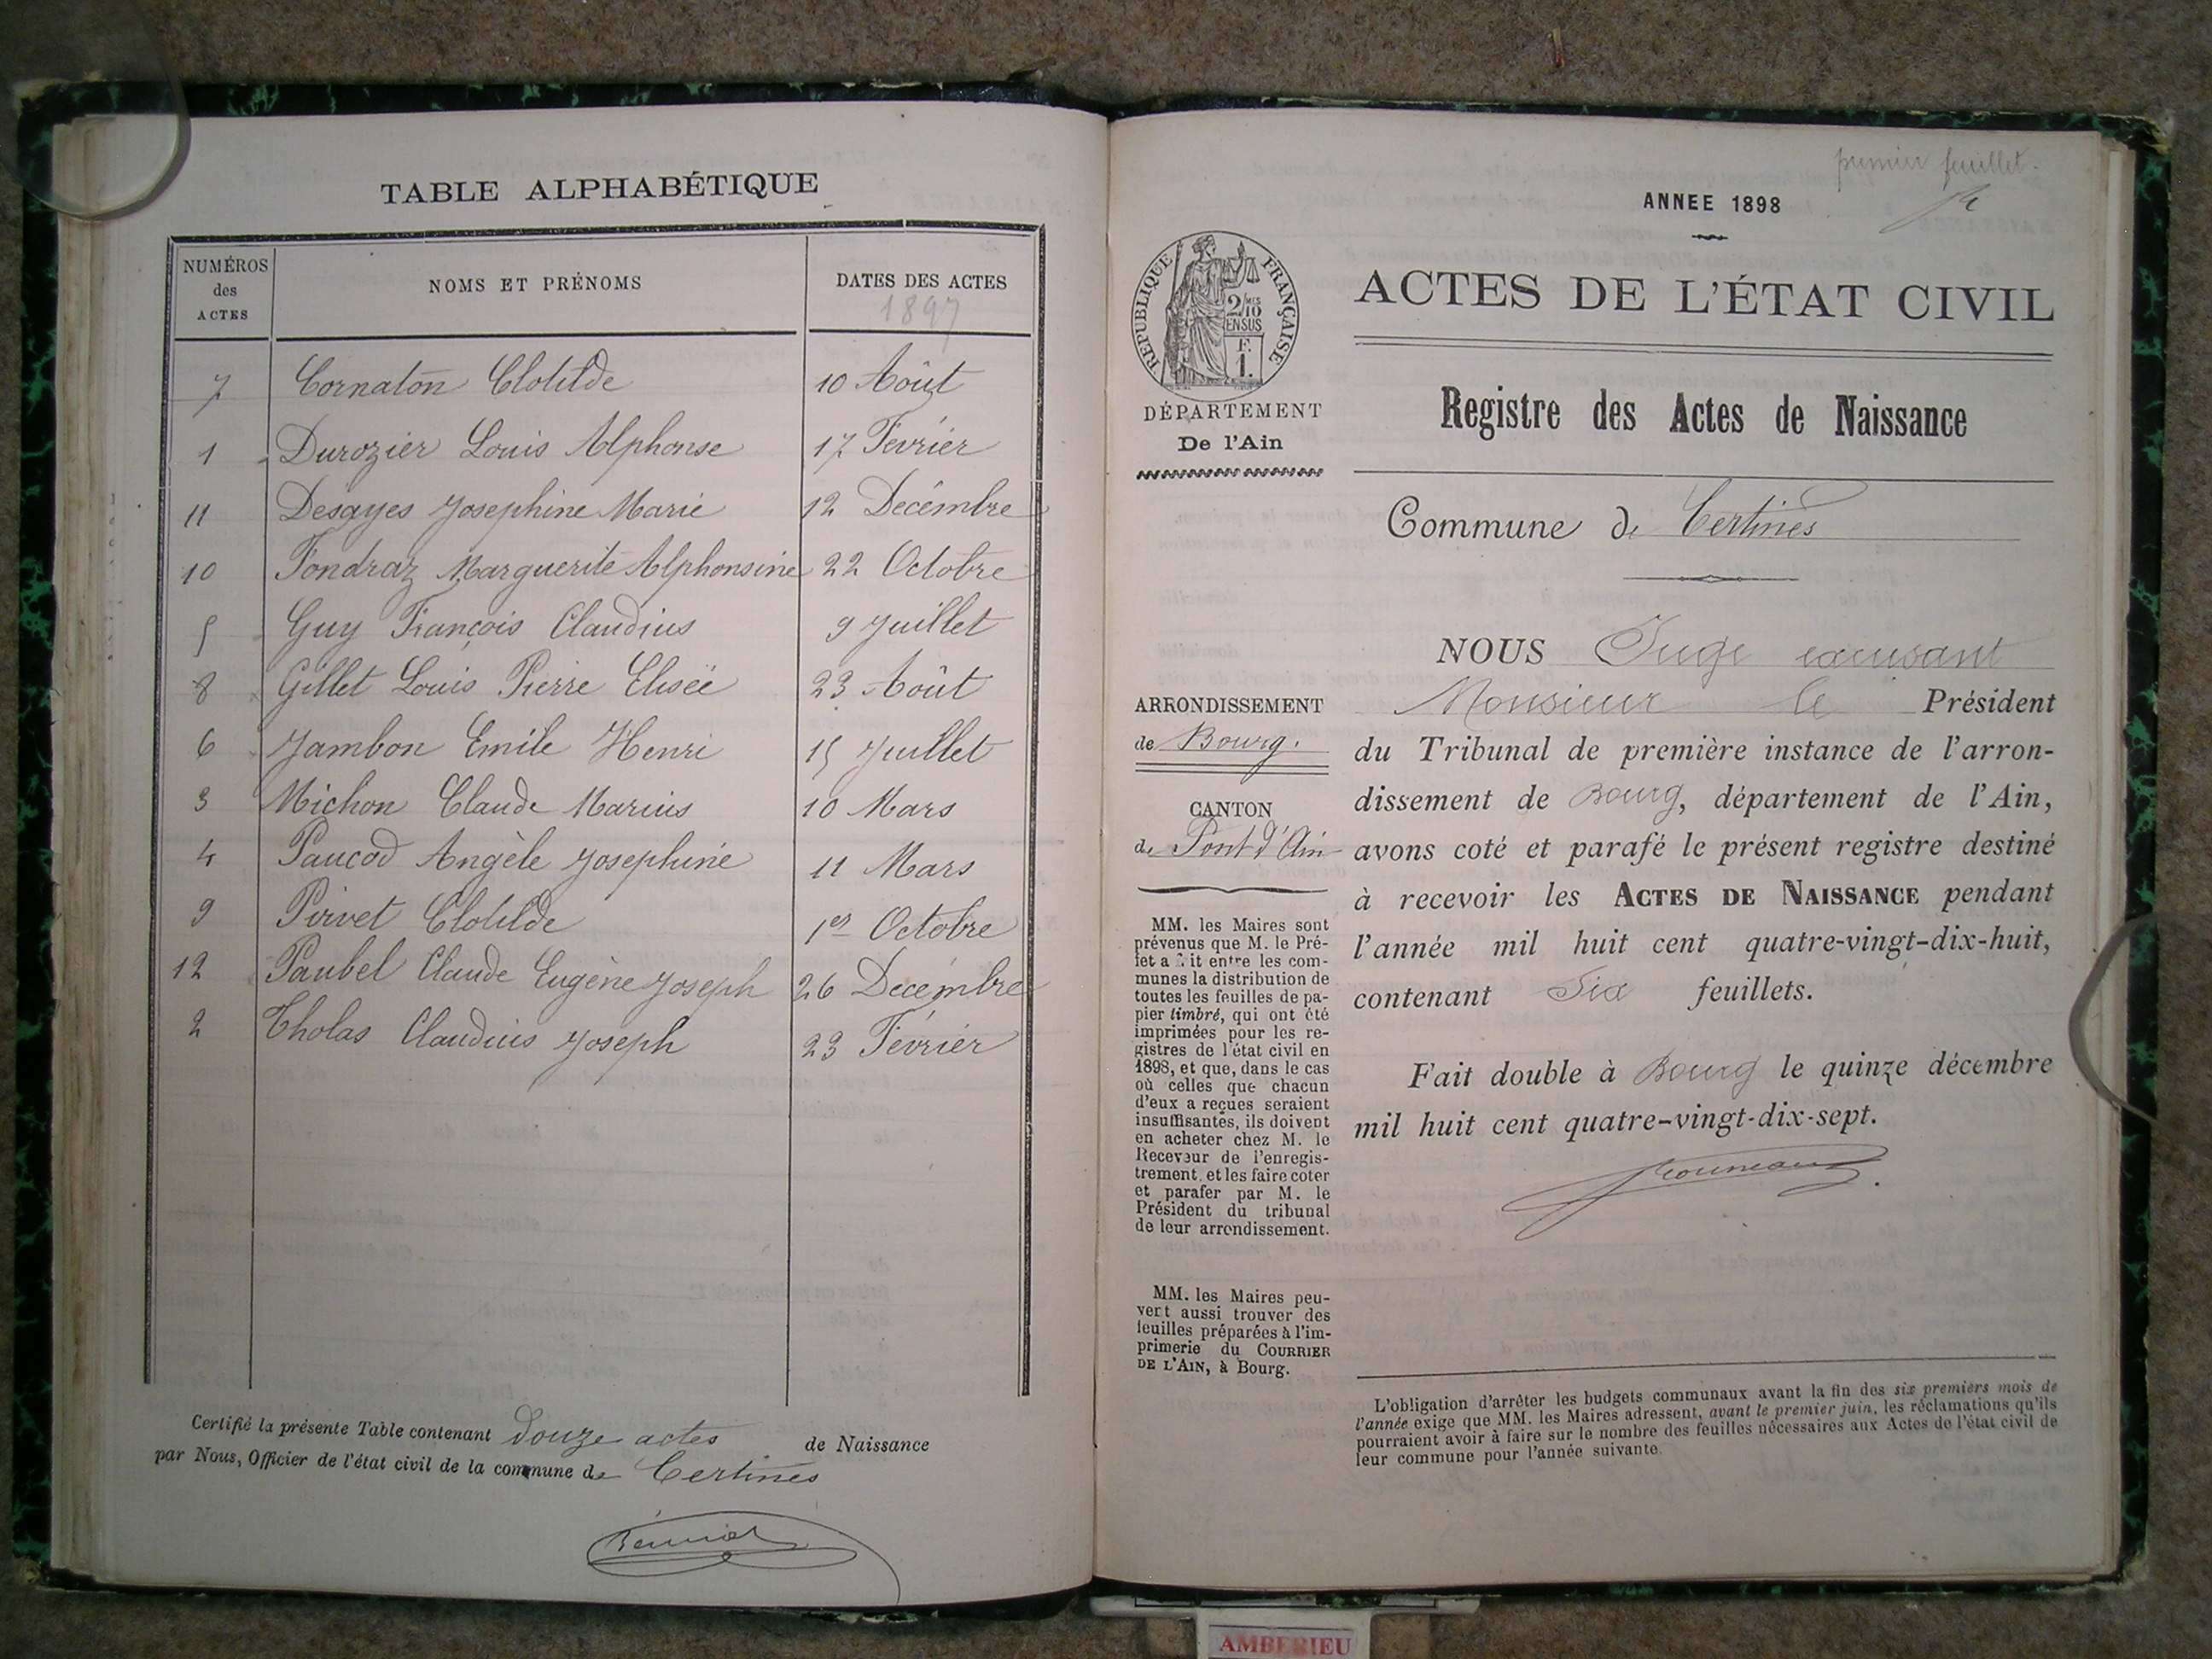 TABLE ALPHABÉTIQUE
NUMÉROS des ACTES NOMS ET PRÉNOMS DATES DES ACTES
1897
7 Cornaton Clotilde 10 Août
1 Durozier Louis Alphonse 17 Février
11 Desayes Josephine Marie 12 Decémbre
10 Fondraz Marguerite Alphonsine 22 Octobre
5 Guy François Claudius 9 Juillet
8 Gillet Louis Pierre Elisée 23 Août
6 Jambon Emile Henri 15 Juillet
3 Michon Claude Marius 10 Mars
4 Paucod Angèle Josephine 11 Mars
9 Pirvet Clotilde 1er Octobre
12 Paubel Claude Eugène Joseph 26 Decémbre
2 Tholas Claudius Joseph 23 Février
Certifié la présente Table contenant Douze actes de Naissance
par Nous, Officier de l'état civil de la commune de Certines
premier feuillet.
ANNEE 1898
REPUBLIQUE FRANÇAISE
2/10 MES
EN SUS
F.
1.
DÉPARTEMENT
De l'Ain
ACTES DE L'ÉTAT CIVIL
Registre des Actes de Naissance
Commune de Certines
ARRONDISSEMENT
de Bourg.
CANTON
de Pont d'Ain
MM. les Maires sont
prévenus que M. le Pré-
fet a fait entre les com-
munes la distribution de
toutes les feuilles de pa-
pier timbré, qui ont été
imprimées pour les re-
gistres de l'état civil en
1898, et que, dans le cas
où celles que chacun
d'eux a reçues seraient
insuffisantes, ils doivent
en acheter chez M. le
Receveur de l'enregis-
trement, et les faire coter
et parafer par M. le
Président du tribunal
de leur arrondissement.
MM. les Maires peu-
vent aussi trouver des
feuilles préparées à l'im-
primerie du COURRIER
DE L'AIN, à Bourg.
NOUS Juge excusant
Monsieur le Président
du Tribunal de première instance de l'arron-
dissement de Bourg, département de l'Ain,
avons coté et parafé le présent registre destiné
à recevoir les ACTES DE NAISSANCE pendant
l'année mil huit cent quatre-vingt-dix-huit,
contenant Six feuillets.
Fait double à Bourg le quinze décembre
mil huit cent quatre-vingt-dix-sept.
L'obligation d'arrêter les budgets communaux avant la fin des six premiers mois de
l'année exige que MM. les Maires adressent, avant le premier juin, les réclamations qu'ils
pourraient avoir à faire sur le nombre des feuilles nécessaires aux Actes de l'état civil de
leur commune pour l'année suivante.
AMBERIEU